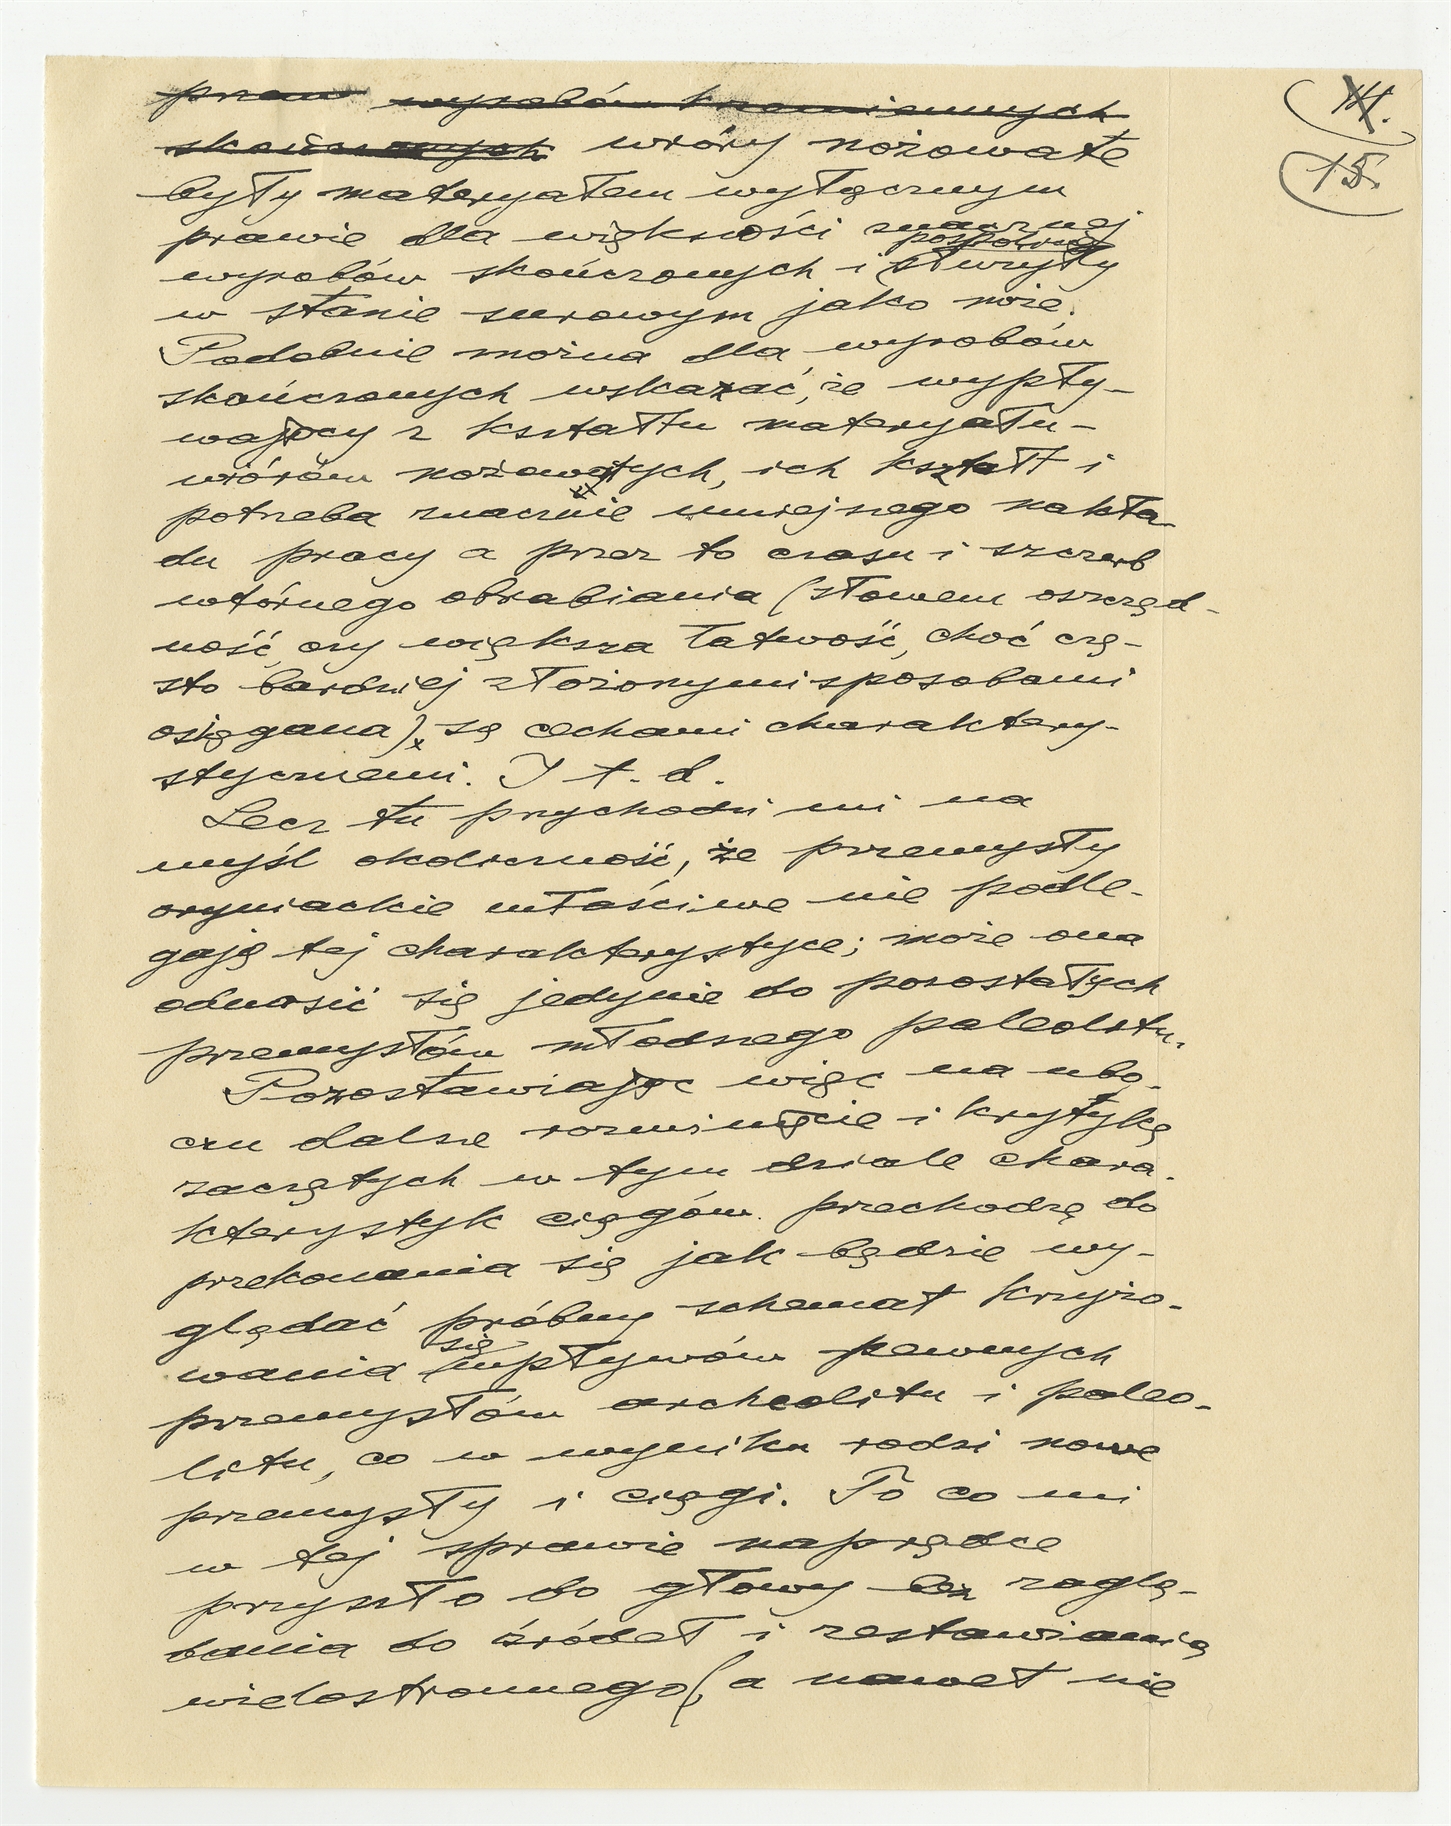 14.
15.
praw wyrobów krzemiennych
skończonych wióry nożowate
były materyałem wyłącznym
prawie dla większości znacznej
pospolicie
wyrobów skończonych i służyły
w stanie surowym jako noże.
Podobnie można dla wyrobów
skończonych wskazać, że wypły-
wający z kształtu materyału -
wiórów nożowatych, ich kształt i
potrzeba znacznie mniejszego nakła-
du pracy a przez to czasu i szczerb
wtórnego obrabiania (słowem oszczęd-
ność, czy większa łatwość, choć czę-
sto bardziej złożonymi sposobami
osięgana), są cechami charaktery-
stycznemi. I t. d.
Lecz tu przychodzi mi na
myśl okoliczność, że przemysły
oryniackie właściwe nie podle-
gają tej charakterystyce; może ona
odnosić się jedynie do pozostałych
przemysłów młodszego paleolitu.
Pozostawiając więc na ubo-
czu dalsze rozwinięcie i krytykę
zaczętych w tym dziale chara-
kterystyk ciągów przechodzę do
przekonania się jak będzie wy-
glądać próbny schemat krzyżo-
się
wania wpływów pewnych
przemysłów archeolitu i paleo-
litu, co w wyniku rodzi nowe
przemysły i ciągi. To co mi
w tej sprawie naprędce
przyszło do głowy bez zaglą-
dania do źródeł i zestawiania
wielostronnego (, a nawet nie